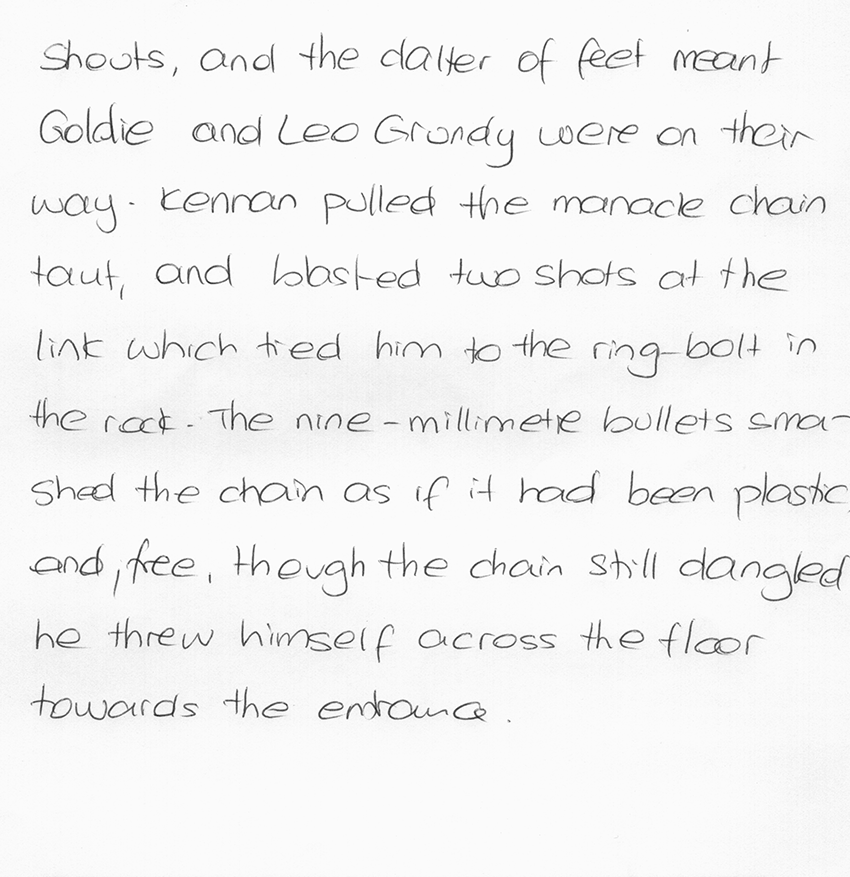 Shouts, and the clatter of feet meant
Goldie and Leo Grundy were on their
way. Kennan pulled the manacle chain
taut, and blasted two shots at the
link which tied him to the ring-bolt in
the rock. The nine-millimetre bullets sma-
shed the chain as if it had been plastic,
and, free, though the chain still dangled
he threw himself across the floor
towards the entrance.